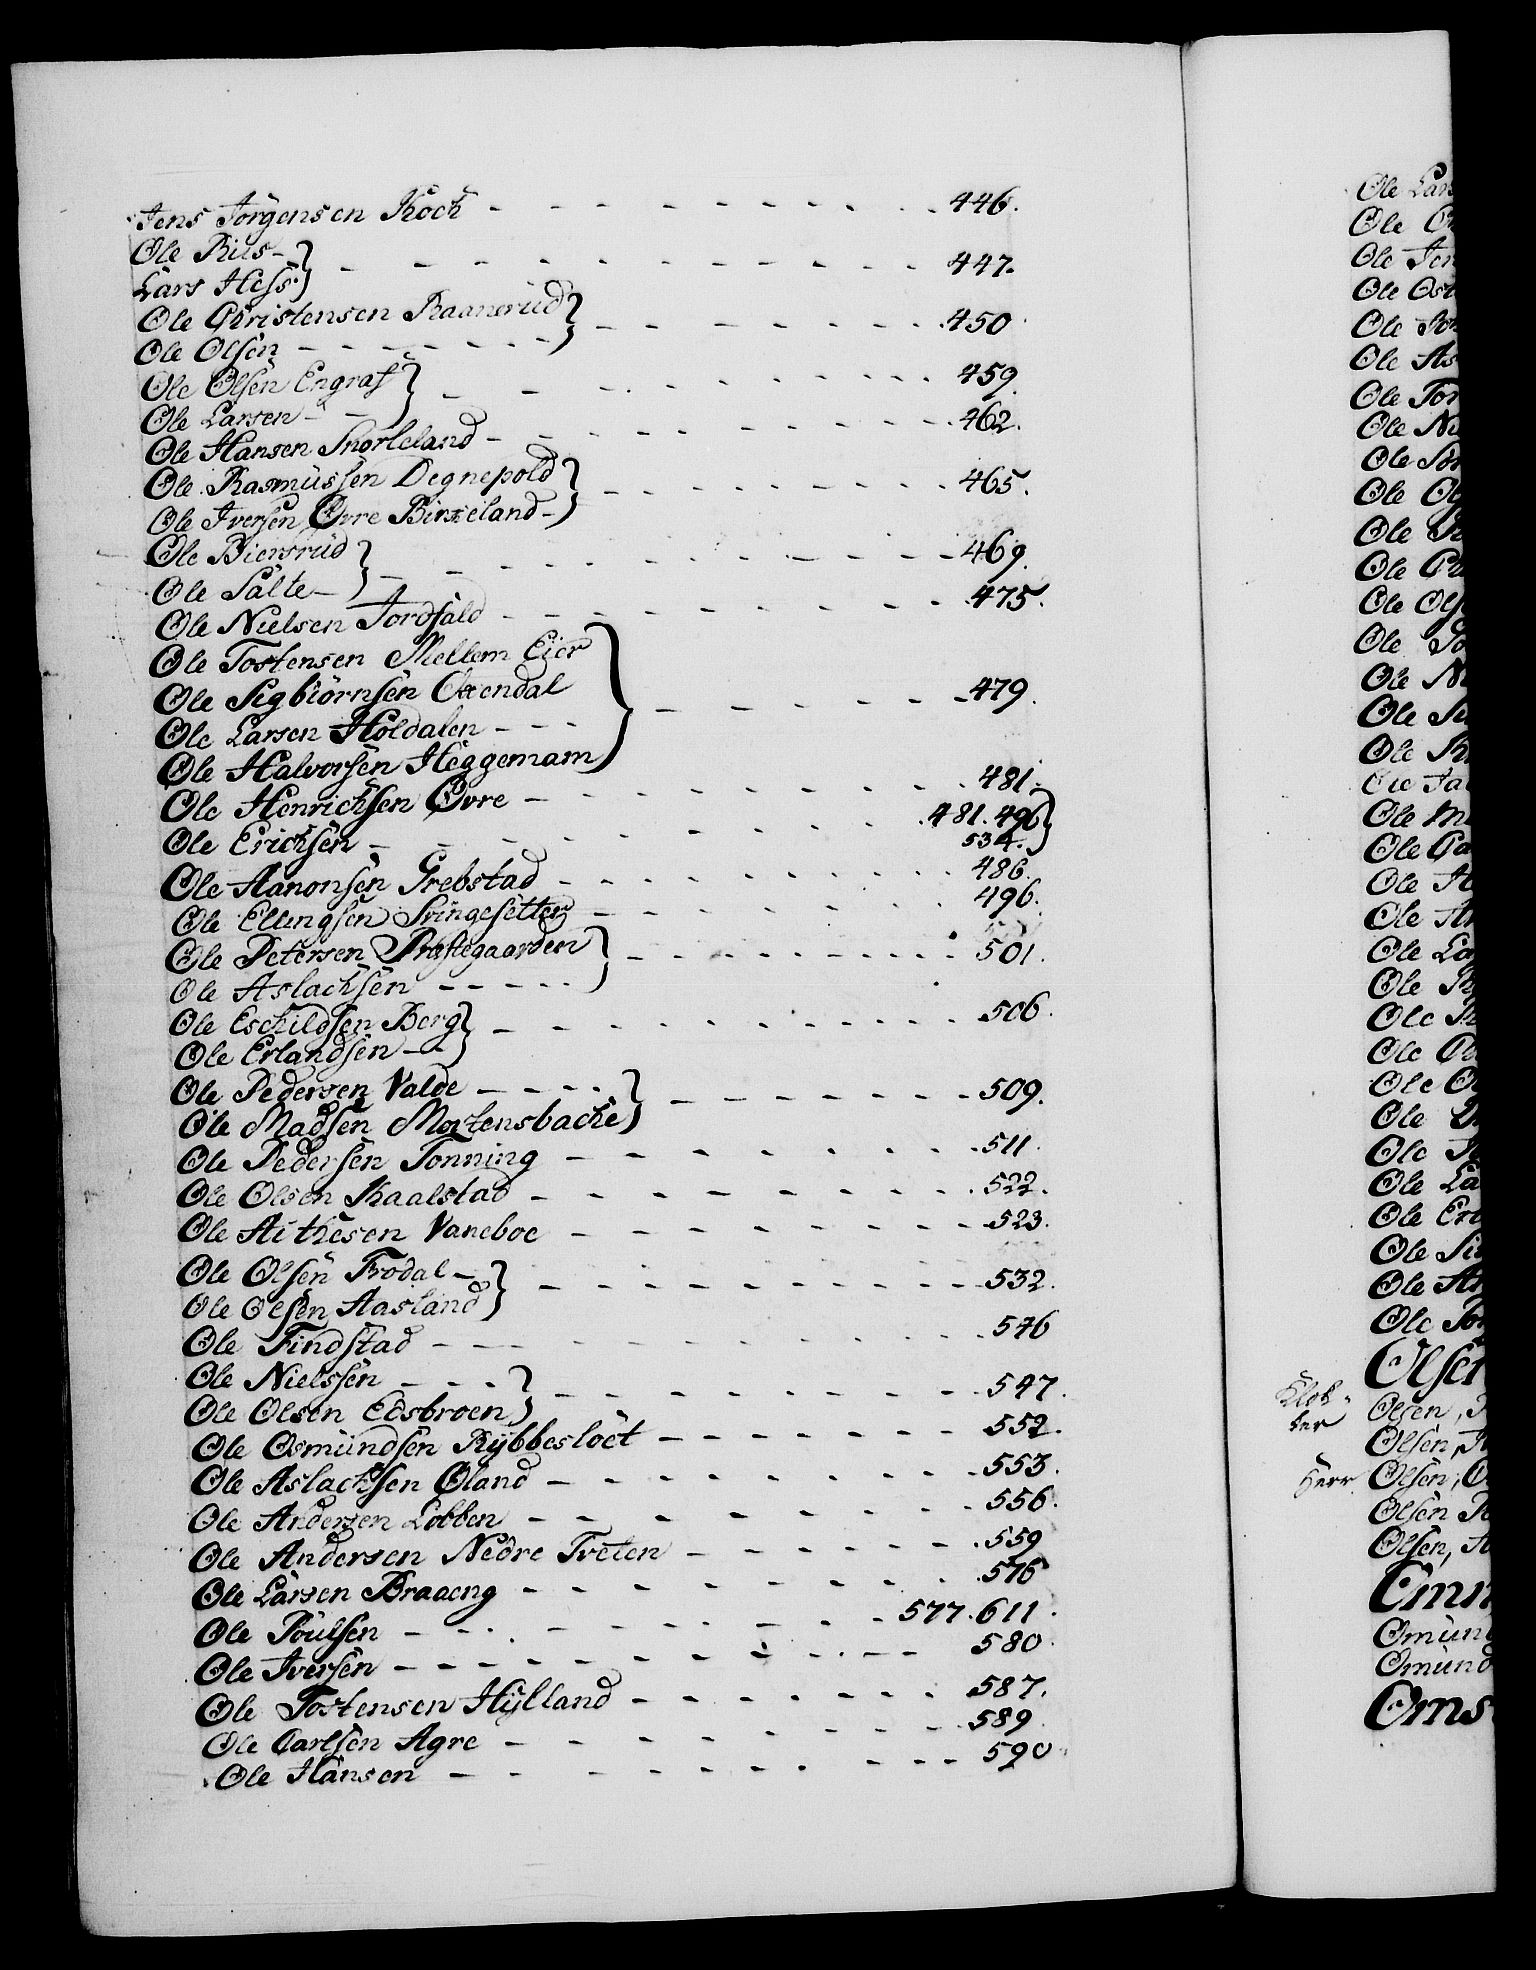 Jens Jörgensen Koch - - - - - - - - - 446.
Ole Riis -
Lars Hess } - - - - - - - - - 447.
Ole Christensen Raanerüd
Ole Olsen - - - - - - } - - - - - - 450
Ole Olsen Engraf
Ole Larsen - - } - - - - - - - - 459.
Ole Hansen Snorteland - - - - - - - - 462.
Ole Rasmüssen Degnepold
Ole Iversen Øvre Birkeland - } - - - - - - 465.
Ole Biersrüd
Ole Salte - } - - - - - - - - 469.
Ole Nielsen Jordfald - - - - - - - - 475.
Ole Tostensen Mellem Eier
Ole Sigbiörnsen Ekendal
Ole Larsen Holdalen - - - } - - - - - 479.
Ole Halvorsen Heggemam
Ole Henrichsen Øvre - - - - - - - - 481.
Ole Erichsen - - - - - - - - 481. 496
534. }
Ole Aanonsen Grebstad - - - - - - - 486.
Ole Ellingsen Svingesetter - - - - - - 496.
Ole Petersen Præstegaarden
Ole Aslachsen - - - - - } - - - - - - 501.
Ole Eschildsen Berg
Ole Erlandsen - - } - - - - - - - - 506.
Ole Pedersen Valde - - - -
Ole Madsen Mortensbache } - - - - - - 509.
Ole Pedersen Tonning - - - - - - - 511.
Ole Olsen Kaalstad - - - - - - - - 522.
Ole Aithesen Vaneboe - - - - - - - 523.
Ole Olsen Frodal -
Ole Olsen Aasland } - - - - - - - - 532.
Ole Findstad - - - - - - - - - 546
Ole Nielssen - - - -
Ole Olsen Edsbroen } - - - - - - - 547.
Ole Osmündsen Rybbesloet - - - - - - 552.
Ole Aslachsen Øland - - - - - - - 553.
Ole Andersen Lobben - - - - - - - 556.
Ole Andersen Nedre Tveten - - - - - 559
Ole Larsen Braaeng - - - - - - - 576
Ole Poülsen - - - - - - - 577. 611.
Ole Iversen - - - - - - - - - 580.
Ole Tostensen Hylland - - - - - - - 587.
Ole Carlsen Agre - - - - - - - 589.
Ole Hansen - - - - - - - - - 590
Ole Lars
Ole
Ole Jen
Ole Ost
Ole Joh
Ole As
Ole Tor
Ole Ni
Ole Sör
Ole Ol
Ole
Ole
Ole Ols
Ole
Ole Ni
Ole
Ole
Ole Ja
Ole M
Ole Ga
Ole
Ole An
Ole La
Ole
Ole
Ole
Ole
Ole
Ole
Ole La
Ole Er
Ole Si
Ole An
Ole Tor
Olsen
Klok-
ker Olsen,
Olsen,
Herr Olsen,
Olsen
Olsen,
Omm
Omün
Omünd
Oms